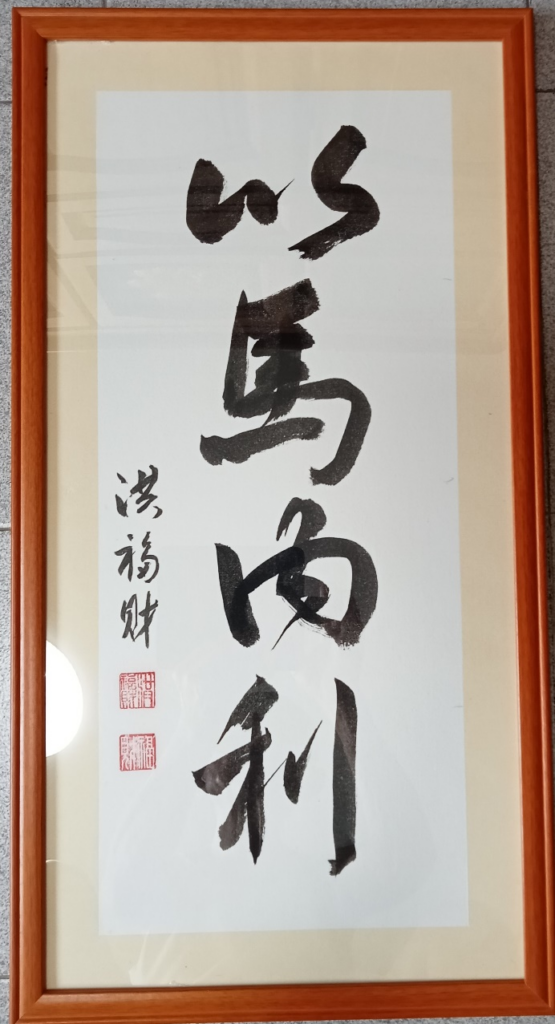 以馬內利
洪福財